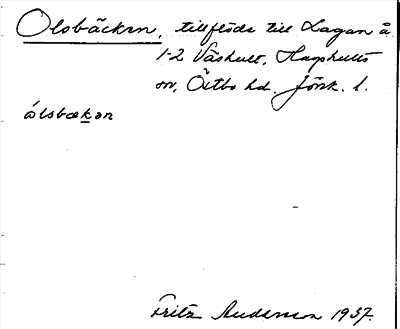 Olsbäcken, tillflöde till Lagan å
1-2 Våshult, Hagshults
sn, Östbo hd. Jönk. l.
ólsbækən
Fritz Anderson 1937.